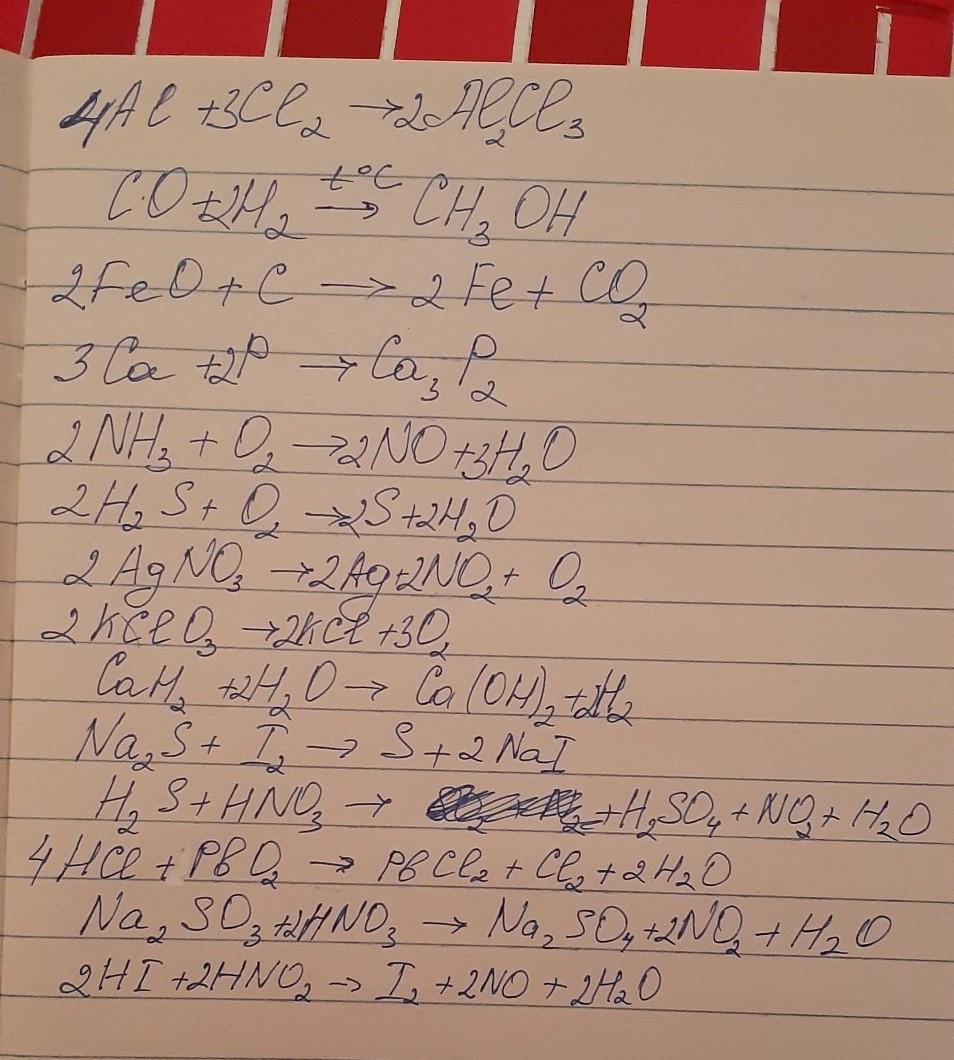 4Al + 3Cl₂ → 2Al₂Cl₃
CO + 2H₂ t°C → CH₃OH
2FeO + C → 2Fe + CO₂
3Ca + 2P → Ca₃P₂
2NH₃ + O₂ → 2NO + 3H₂O
2H₂S + O₂ → 2S + 2H₂O
2AgNO₃ → 2Ag + 2NO₂ + O₂
2KClO₃ → 2KCl + 3O₂
CaH₂ + 2H₂O → Ca(OH)₂ + 2H₂
Na₂S + I₂ → S + 2NaI
H₂S + HNO₃ → + H₂SO₄ + NO₂ + H₂O
4HCl + PbO₂ → PbCl₂ + Cl₂ + 2H₂O
Na₂SO₃ + 2HNO₃ → Na₂SO₄ + 2NO₂ + H₂O
2HI + 2HNO₂ → I₂ + 2NO + 2H₂O